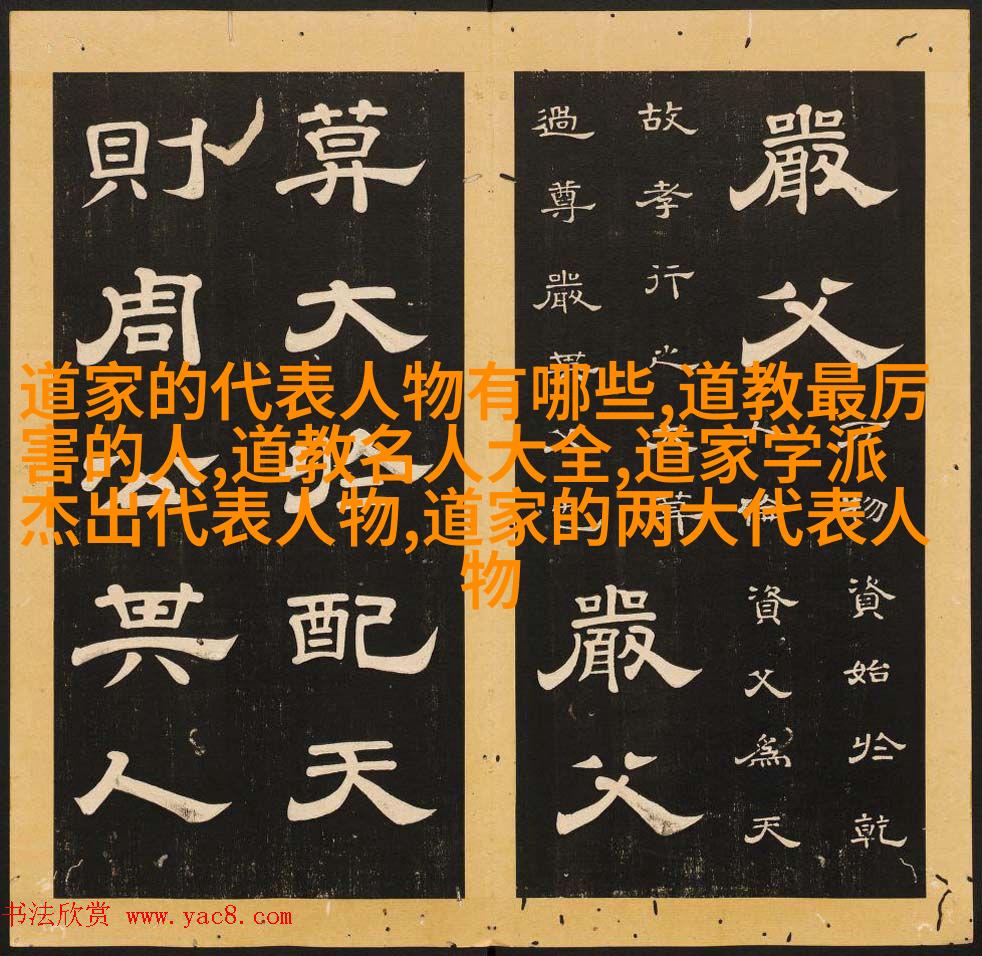 嚴父
物資始於乾
人倫資父為天
故孝行之大莫
過尊嚴其父也
嚴父
莫大於配天
則周公其人
道家的代表人物有哪些,道教最厉
害的人,道教名人大全,道家学派
杰出代表人物,道家的两大代表人
物
书法欣赏 www.yac8.com